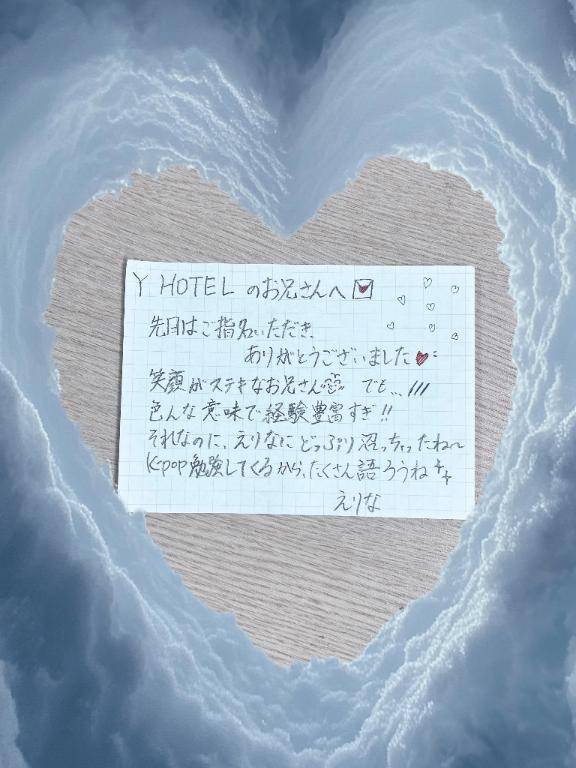 Y HOTEL のお兄さんへ
先日はご指名いただき、
ありがとうございました
笑顔がステキなお兄さん でも...///
色んな意味で経験豊富すぎ!!
それなのに、えりなにどっぷり沼っちゃったね〜
K-pop勉強してくるから、たくさん語ろうね
えりな